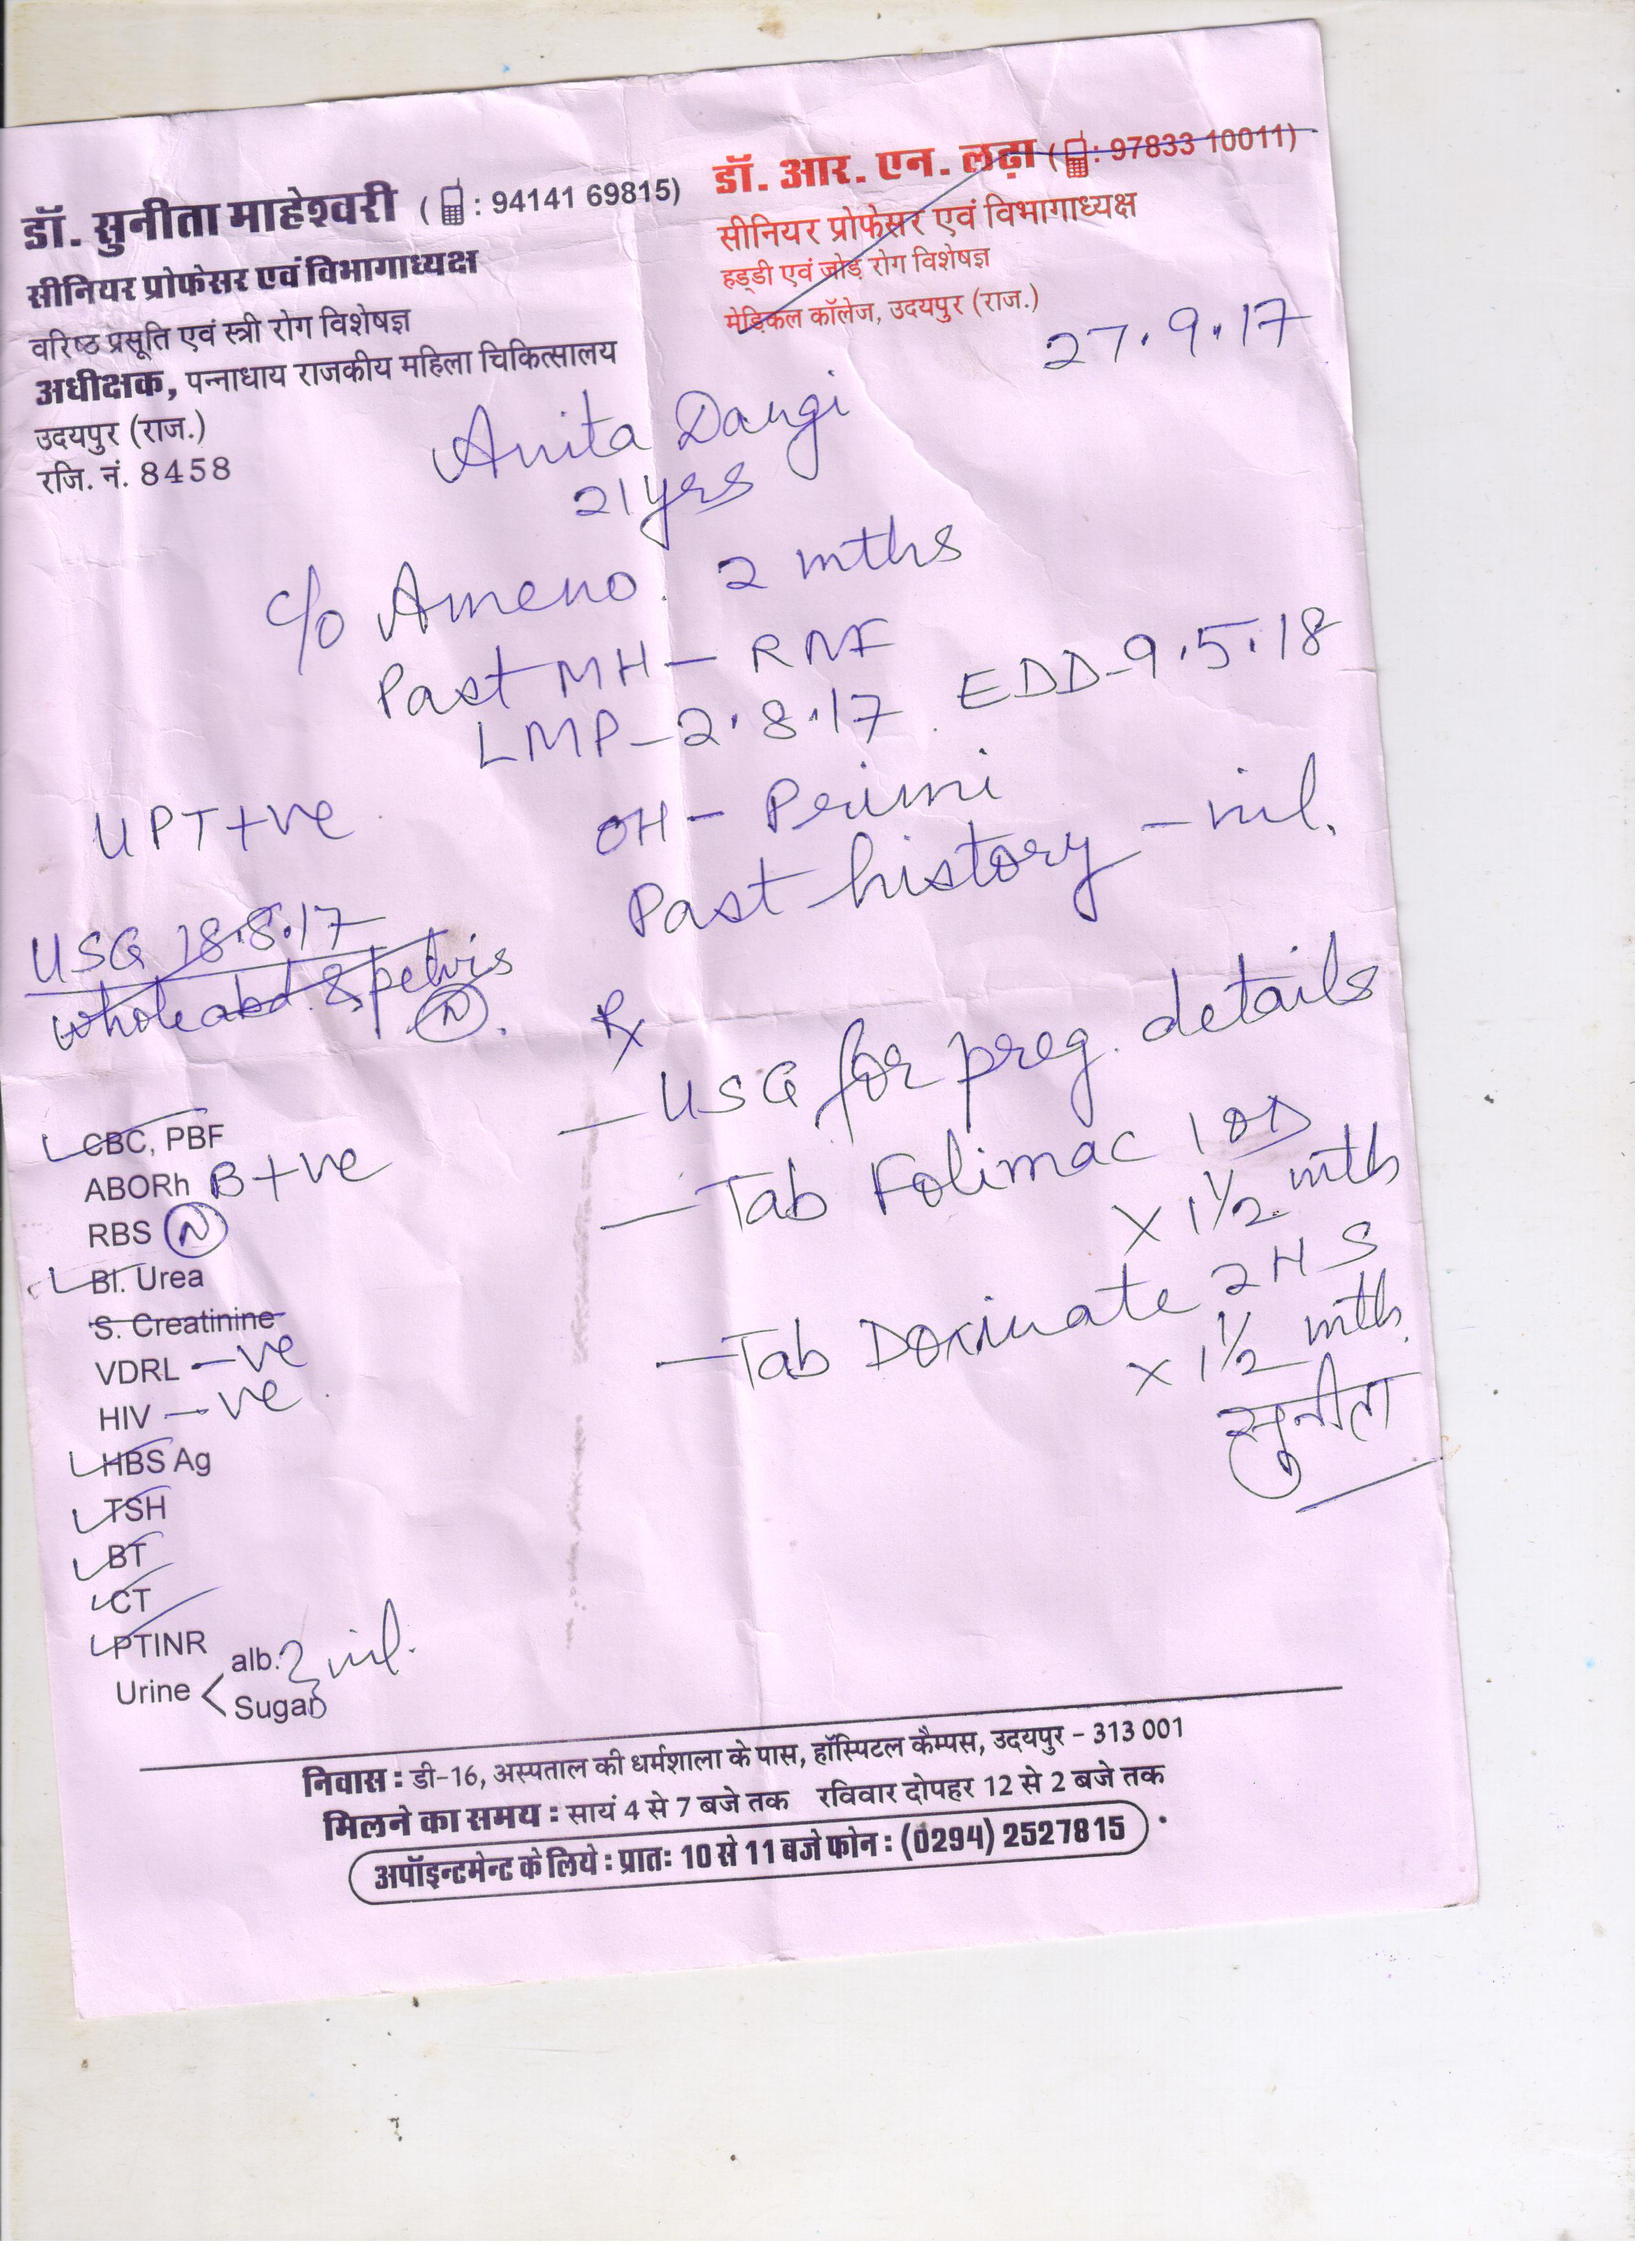 डॉ. सुनीता माहेश्वरी ( : 94141 69815)
सीनियर प्रोफेसर एवं विभागाध्यक्ष
वरिष्ठ प्रसूति एवं स्त्री रोग विशेषज्ञ
अधीक्षक, पन्नाधाय राजकीय महिला चिकित्सालय
उदयपुर (राज.)
रजि. नं. 8458
डॉ. आर. एन. लढ़ा ( : 97833 10011)
सीनियर प्रोफेसर एवं विभागाध्यक्ष
हड्डी एवं जोड़ रोग विशेषज्ञ
मेडिकल कॉलेज, उदयपुर (राज.)
27.9.17
Anita Dangi
21 yrs
c/o Ameno. 2 mths
Past MH - RNF
LMP - 2.8.17 EDD - 9.5.18
UPT +ve
OH - Primi
Past history - nil.
USG 18.8.17
whole abd. & pelvis
N.
Rx
- USG for preg. details
- Tab Folimac 1 OD
x 1½ mth
- Tab Doxinate 2 HS
x 1½ mth.
सुनीता
CBC, PBF
ABORh B +ve
RBS N
Bl. Urea
S. Creatinine
VDRL -ve
HIV -ve
HBS Ag
TSH
BT
CT
PTINR
Urine < alb. } nil.
Sugar
निवास : डी-16, अस्पताल की धर्मशाला के पास, हॉस्पिटल कैम्पस, उदयपुर - 313 001
मिलने का समय : सायं 4 से 7 बजे तक रविवार दोपहर 12 से 2 बजे तक
अपॉइन्टमेन्ट के लिये : प्रातः 10 से 11 बजे फोन : (0294) 2527815